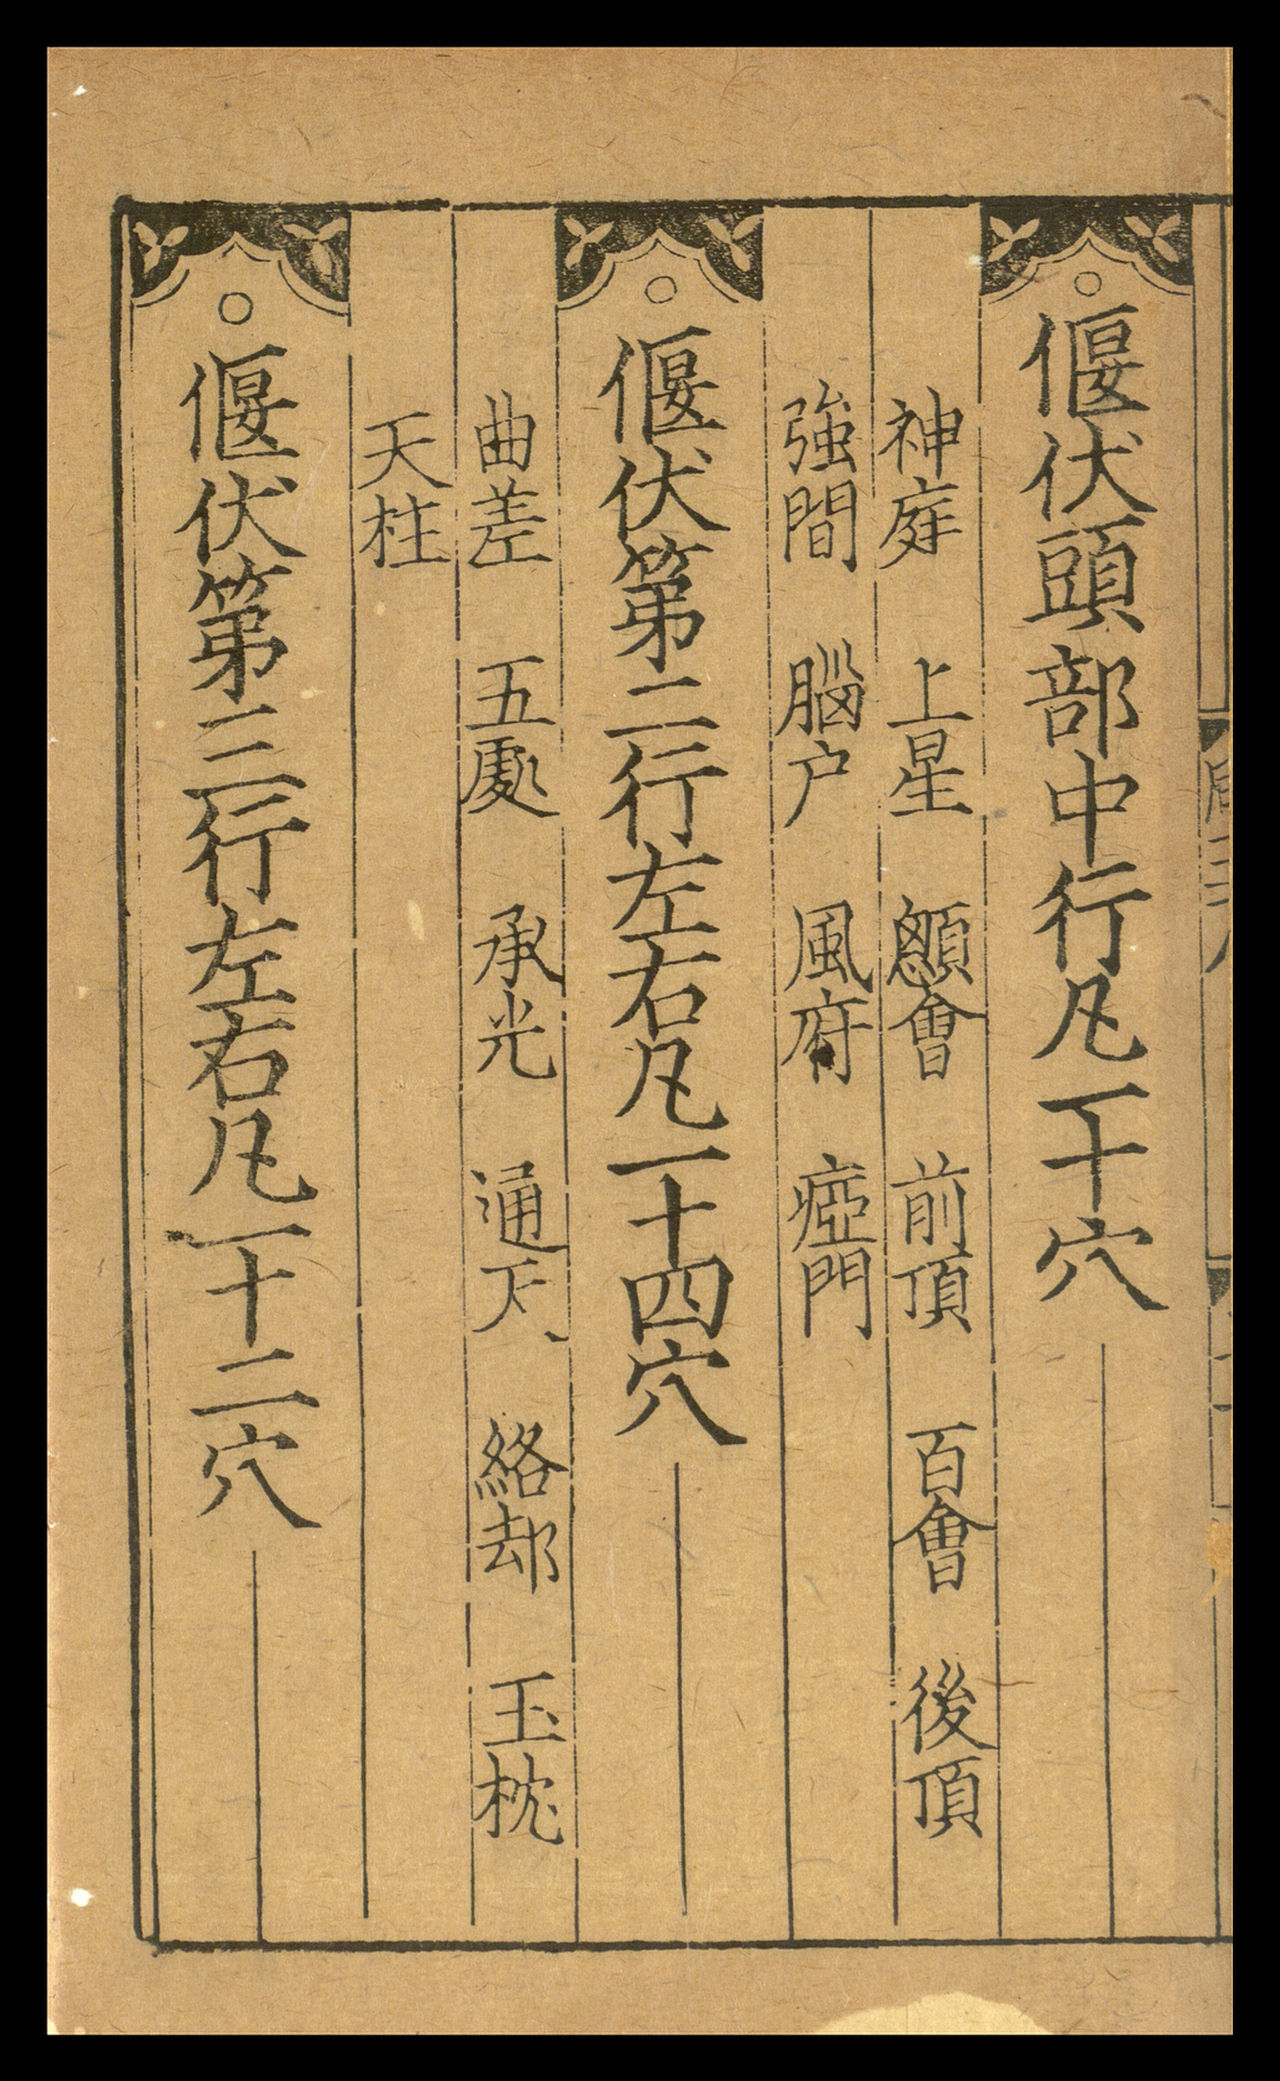 ○偃伏頭部中行凡一十穴
神庭　上星　顖會　前頂　百會　後頂
強間　腦户　風府　瘂門
○偃伏第二行左右凡一十四穴
曲差　五處　承光　通天　絡却　玉枕
天柱
○偃伏第三行左右凡一十二穴